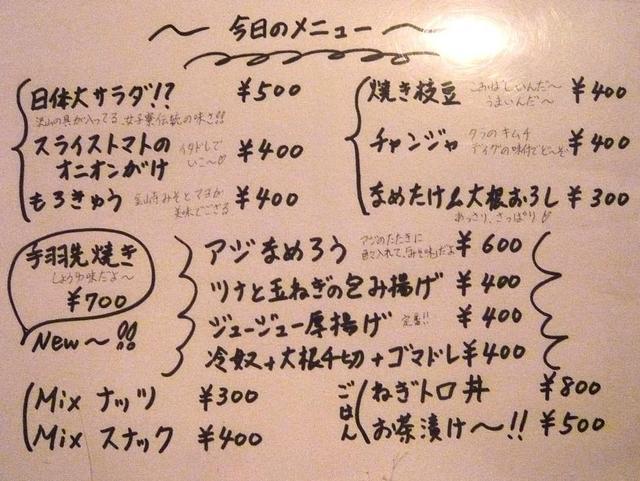 ～ 今日のメニュー ～
日体大サラダ!? ¥500
沢山の具が入ってる、女子寮伝統の味さ!!
スライストマトの
オニオンがけ ¥400
イタドしで
いこ～♡
もろきゅう ¥400
金山寺みそとマヨが
美味でござる
焼き枝豆 ¥400
こおばしいんだ～
うまいんだ～
チャンジャ ¥400
タラのキムチ
なめたけ 大根おろし ¥300
あっさり、さっぱり♡
手羽先焼き
しょうゆ味だよ～
¥700
New～!!
アジなめろう ¥600
アジのたたきに
ツナと玉ねぎの包み揚げ ¥400
ジュージュー厚揚げ 定番!! ¥400
冷奴+大根千切+ゴマドレ ¥400
Mix ナッツ ¥300
Mix スナック ¥400
ごはん
ねぎトロ丼 ¥800
お茶漬け～!! ¥500